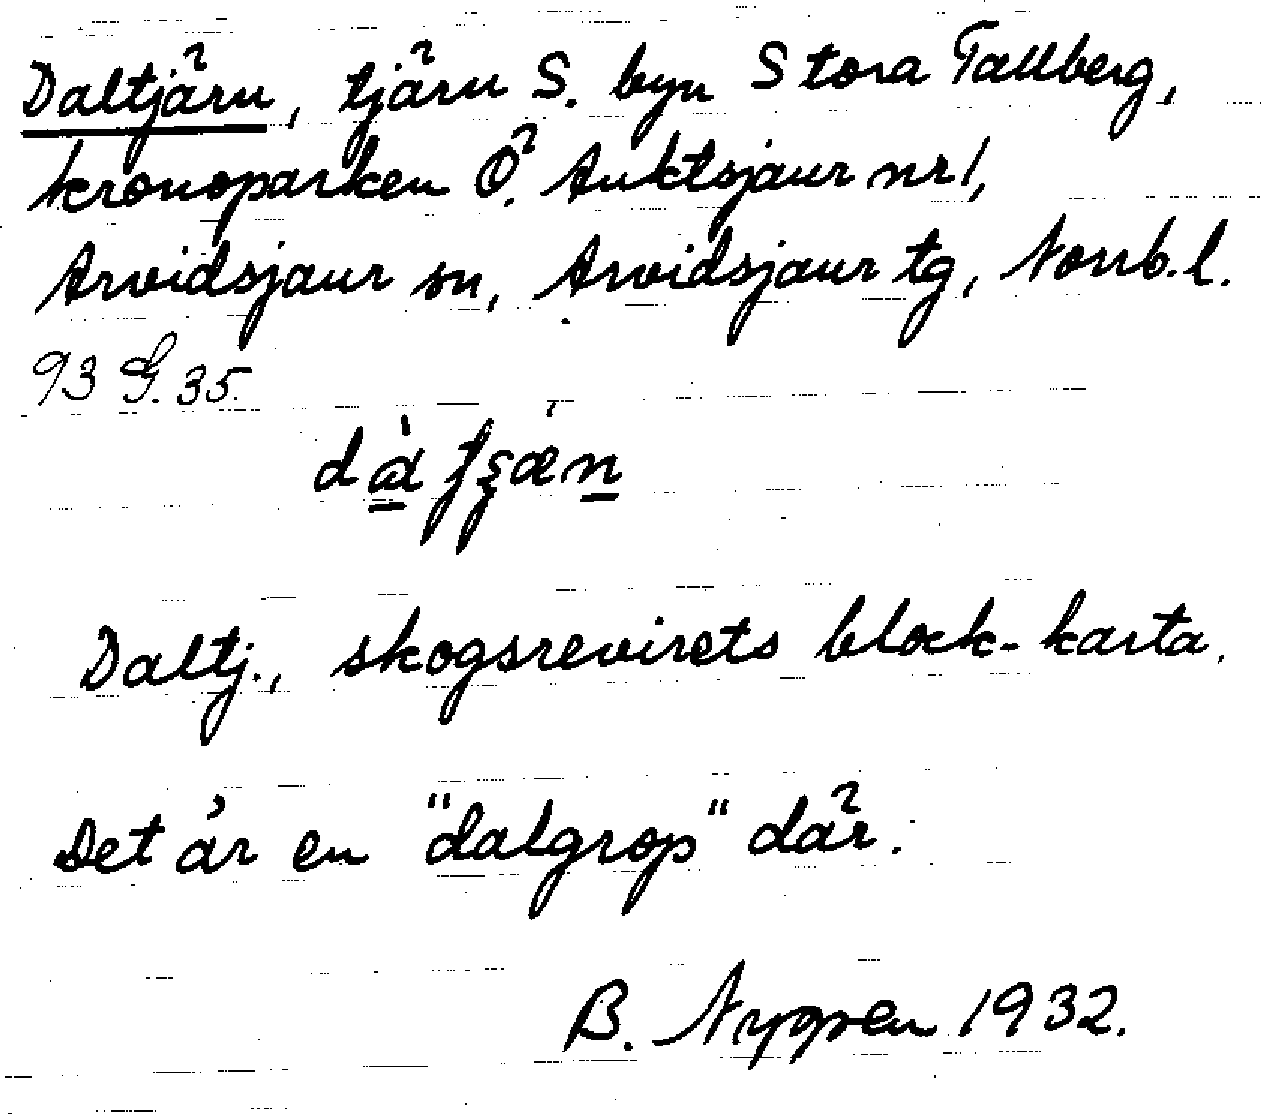 Daltjärn, tjärn S. byn Stora Tallberg,
kronoparken Ö. Auktsjaur nr 1,
Arvidsjaur sn, Arvidsjaur tg, Norrb. l.
93 G. 35.
Daltj., skogsrevirets block-karta.
Det är en "dalgrop" där.
B. Nygren 1932.